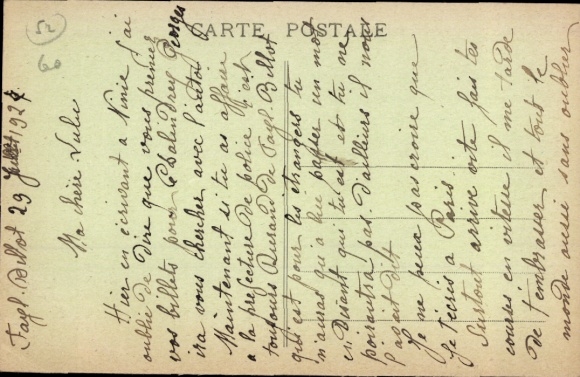 CARTE POSTALE
52
60
Fayl-Billot 29 Juillet 1927
Ma chère Lulu
Hier en écrivant a Ninie j'ai
oublié de Dire que vous preniez
vos billets pour Chalindrey Georges
ira vous chercher avec l'auto
Maintenant si tu as affaire
a la prefecture de police c'est
toujours Durand de Fayl-Billot
qui est pour les étrangers tu
n'auras qu'a lui passer un mot
en Disant qui tu est et tu ne
poirautra pas d'ailleurs il nous
l'avait dit
Je ne peux pas croire que
Je t'ecris a Paris.
Surtout arrive vite fais tes
courses en vitesse il me tarde
de t'embrasser et tout le
monde aussi sans oublier